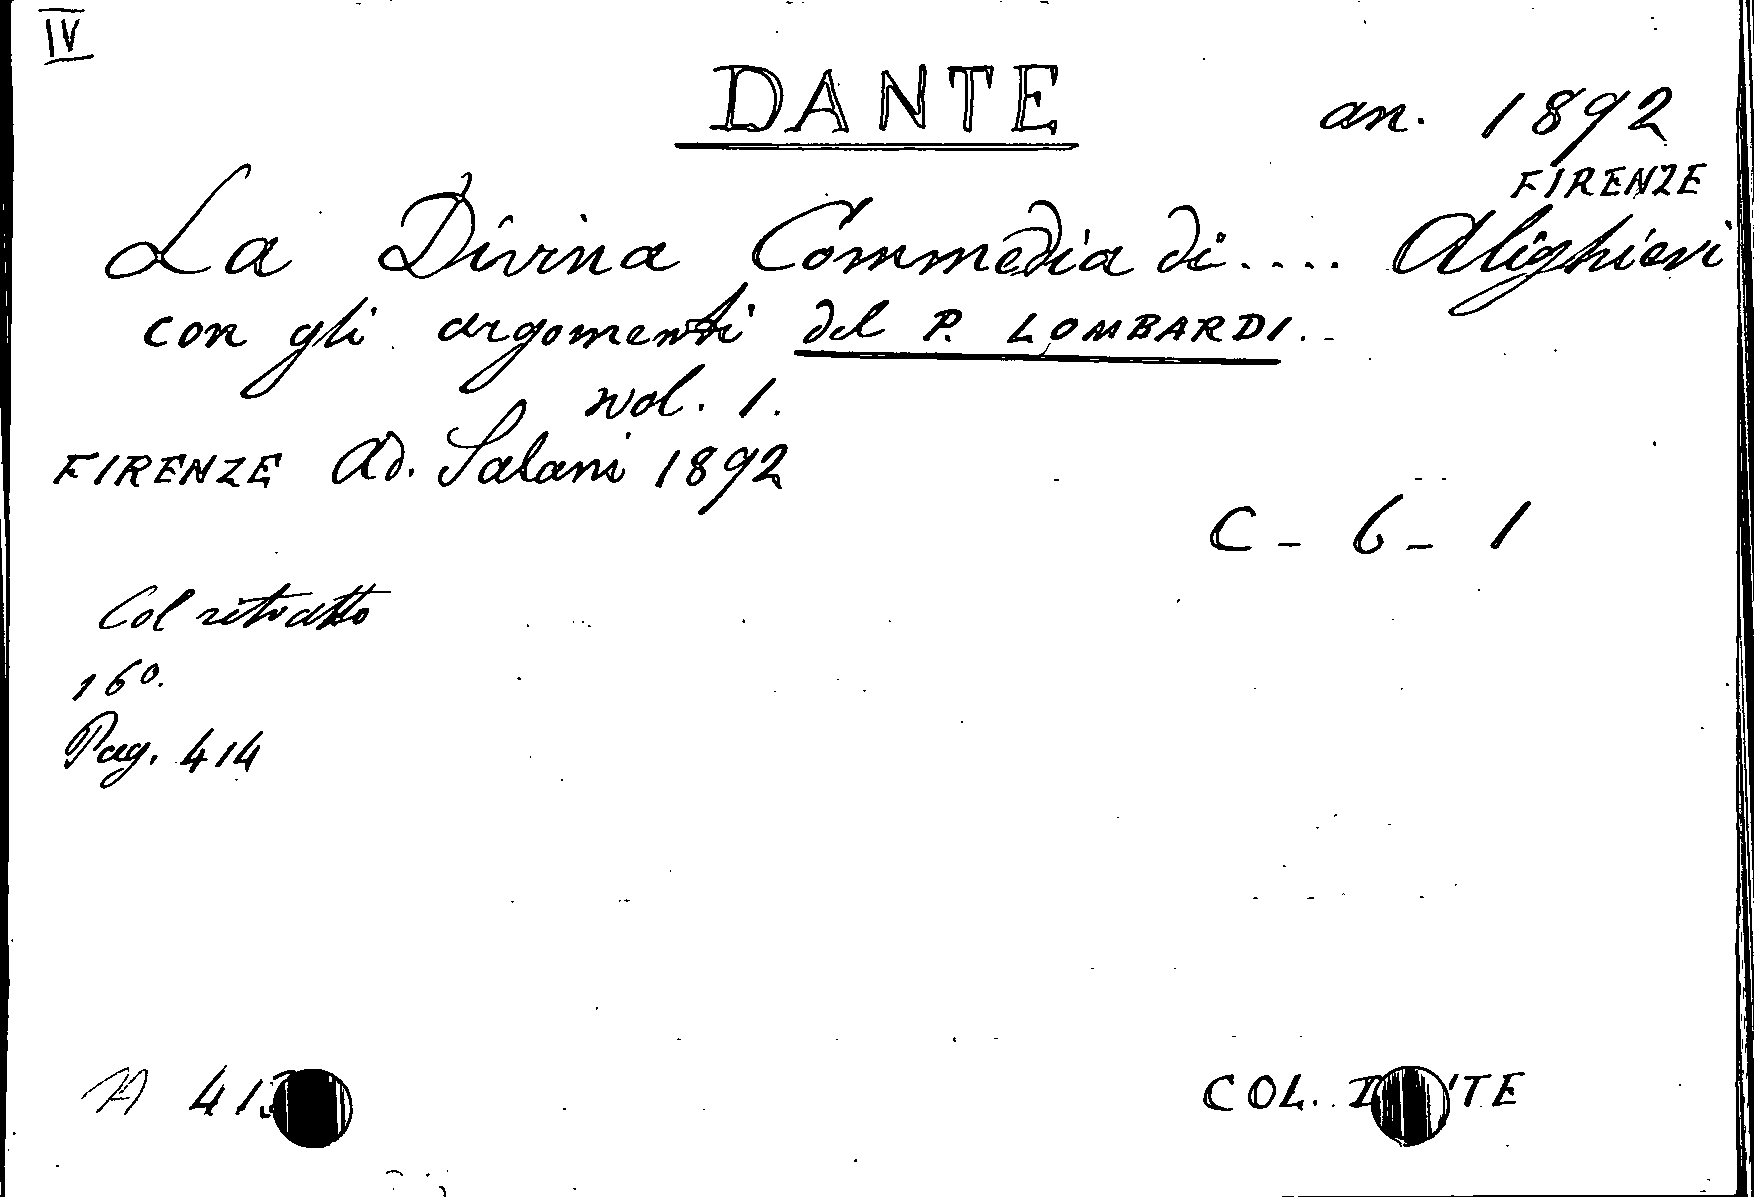 IV
DANTE
an. 1892
FIRENZE
La Divina Commedia di.... Alighieri
con gli argomenti del P. LOMBARDI..
vol. 1.
FIRENZE Ad. Salani 1892
C - 6 - 1
Col ritratto
16º.
Pag. 414
COL.